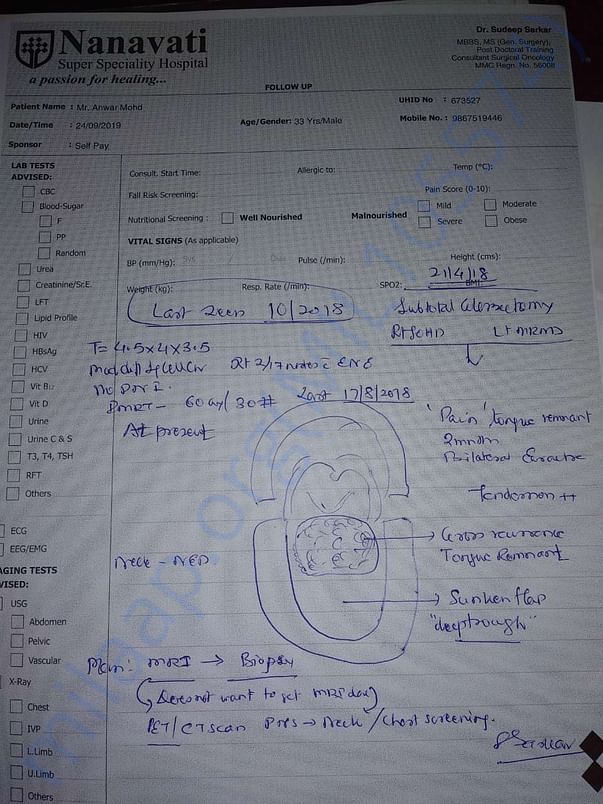 Nanavati
Super Speciality Hospital
a passion for healing...
Dr. Sudeep Sarkar
MBBS, MS (Gen. Surgery),
Post Doctoral Training
Consultant Surgical Oncology
MMC Regn. No. 56008
FOLLOW UP
Patient Name : Mr. Anwar Mohd
UHID No : 673527
Date/Time : 24/09/2019
Age/Gender: 33 Yrs/Male
Mobile No. : 9867519446
Sponsor : Self Pay
LAB TESTS
ADVISED:
CBC
Blood-Sugar
F
PP
Random
Urea
Creatinine/Sr.E.
LFT
Lipid Profile
HIV
HBsAg
HCV
Vit B12
Vit D
Urine
Urine C & S
T3, T4, TSH
RFT
Others
ECG
EEG/EMG
AGING TESTS
VISED:
USG
Abdomen
Pelvic
Vascular
X-Ray
Chest
IVP
L.Limb
U.Limb
Others
Consult. Start Time:
Allergic to:
Temp (°C):
Fall Risk Screening:
Pain Score (0-10):
Mild
Moderate
Nutritional Screening :
Well Nourished
Malnourished
Severe
Obese
VITAL SIGNS (As applicable)
BP (mm/Hg): Sys / Dias
Pulse (/min):
Height (cms):
Weight(kg):
Resp. Rate (/min):
SPO2:
BMI
21/4/18
Last seen 10/2018
Subtotal Glossectomy
Rt SOHD Lt MRMD
T= 4.5x4x3.5
Rt 2/17 nodes c ENE
No PNI.
PORT- 60Gy/30# Last 17/8/2018
At present
'Pain' tongue remnant
2month
Bilateral
++
Gross recurrence
Tongue Remnant
Neck - NED
Sunken flap
"deep trough"
Plan: MRI → Biopsy
(Does not want to get MRI today)
PET/CT scan PNS → Neck / Chest screening.
milaap.org